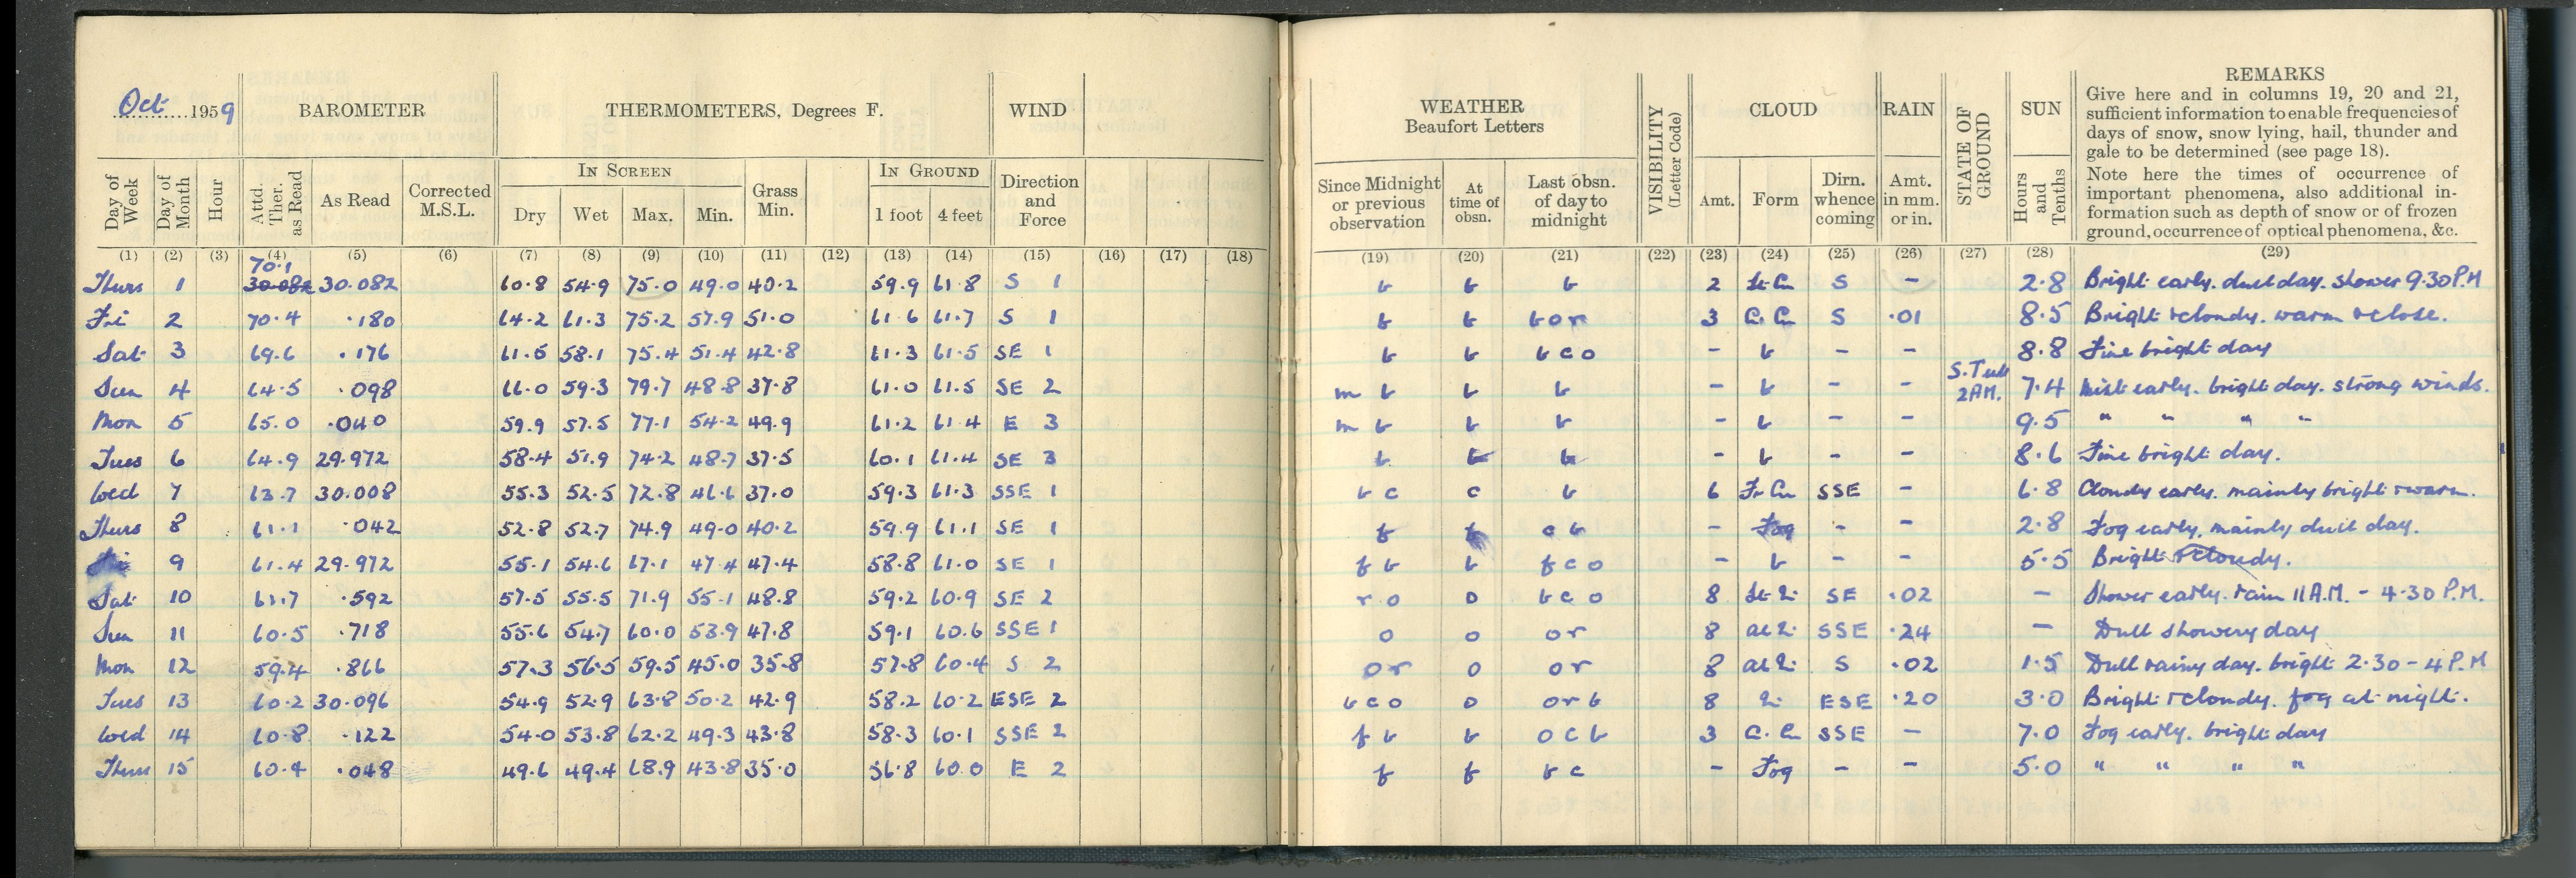 Oct. 1959
BAROMETER
THERMOMETERS, Degrees F.
WIND
IN SCREEN
IN GROUND
Day of Week
Day of Month
Hour
Attd. Ther. as Read
As Read
Corrected M.S.L.
Dry
Wet
Max.
Min.
Grass Min.
1 foot
4 feet
Direction and Force
(1) (2) (3) (4) (5) (6) (7) (8) (9) (10) (11) (12) (13) (14) (15) (16) (17) (18)
70.1
Thurs 1 30.082 30.082 60.8 54.9 75.0 49.0 40.2 59.9 61.8 S 1
Fri 2 70.4 .180 64.2 61.3 75.2 57.9 51.0 61.6 61.7 S 1
Sat 3 69.6 .176 61.5 58.1 75.4 51.4 42.8 61.3 61.5 SE 1
Sun 4 64.5 .098 61.0 59.3 79.7 48.8 37.8 61.0 61.5 SE 2
Mon 5 65.0 .040 59.9 57.5 77.1 54.2 49.9 61.2 61.4 E 3
Tues 6 64.9 29.972 58.4 51.9 74.2 48.7 37.5 60.1 61.4 SE 3
Wed 7 63.7 30.008 55.3 52.5 72.8 46.6 37.0 59.3 61.3 SSE 1
Thurs 8 61.1 .042 52.8 52.7 74.9 49.0 40.2 59.9 61.1 SE 1
Fri 9 61.4 29.972 55.1 54.6 67.1 47.4 47.4 58.8 61.0 SE 1
Sat 10 61.7 .592 57.5 55.5 71.9 55.1 48.8 59.2 60.9 SE 2
Sun 11 60.5 .718 55.6 54.7 60.0 53.9 47.8 59.1 60.6 SSE 1
Mon 12 59.4 .866 57.3 56.5 59.5 45.0 35.8 57.8 60.4 S 2
Tues 13 60.2 30.096 54.9 52.9 63.8 50.2 42.9 58.2 60.2 ESE 2
Wed 14 60.8 .122 54.0 53.8 62.2 49.3 43.8 58.3 60.1 SSE 2
Thurs 15 60.4 .048 49.6 49.4 68.9 43.8 35.0 56.8 60.0 E 2
WEATHER
Beaufort Letters
Since Midnight or previous observation
At time of obsn.
Last obsn. of day to midnight
VISIBILITY (Letter Code)
CLOUD
Amt.
Form
Dirn. whence coming
RAIN
Amt. in mm. or in.
STATE OF GROUND
SUN
Hours and Tenths
REMARKS
Give here and in columns 19, 20 and 21,
sufficient information to enable frequencies of
days of snow, snow lying, hail, thunder and
gale to be determined (see page 18).
Note here the times of occurrence of
important phenomena, also additional in-
formation such as depth of snow or of frozen
ground, occurrence of optical phenomena, &c.
(19) (20) (21) (22) (23) (24) (25) (26) (27) (28) (29)
b b b 2 St. Cu S - 2.8 Bright early. dull day. shower 9.30 P.M
b b bor 3 Ci. Cu S .01 8.5 Bright & cloudy. warm & close.
b b bco - b - - 8.8 Fine bright day
m b b b - b - - 2 AM. 7.4 Mist early. bright day. strong winds.
m b b b - b - - 9.5 " " " "
b b b - b - - 8.6 Fine bright day.
b c c b 6 Fr Cu SSE - 6.8 Cloudy early. mainly bright & warm.
f f c b - Fog - - 2.8 Fog early. mainly dull day.
f b b f c o - b - - 5.5 Bright & cloudy.
r o o b c o 8 SE .02 - Shower early. rain 11 A.M. - 4.30 P.M.
o o o r 8 SSE .24 - Dull showery day
o r o o r 8 S .02 1.5 Dull rainy day. bright 2.30 - 4 P.M
b c o o o r b 8 ESE .20 3.0 Bright & cloudy. fog at night.
f b b o c b 3 Ci. Cu SSE - 7.0 Fog early. bright day
f f b c - Fog - - 5.0 " " " "